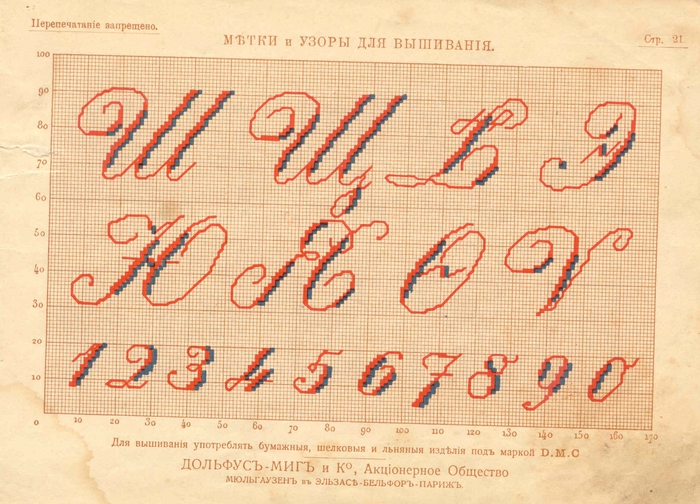 Перепечатаніе запрещено.
МѢТКИ и УЗОРЫ ДЛЯ ВЫШИВАНІЯ.
Стр. 21.
100
90
80
70
60
50
40
30
20
10
0
Ш Щ Ь Э
Ю Я Ѳ Ѵ
1 2 3 4 5 6 7 8 9 0
10 20 30 40 50 60 70 80 90 100 110 120 130 140 150 160 170
Для вышиванія употреблять бумажныя, шелковыя и льняныя издѣлія подъ маркой D.M.C
ДОЛЬФУСЪ-МИГЪ и Кº, Акціонерное Общество
МЮЛЬГАУЗЕНЪ въ ЭЛЬЗАСѢ-БЕЛЬФОРЪ-ПАРИЖЪ.